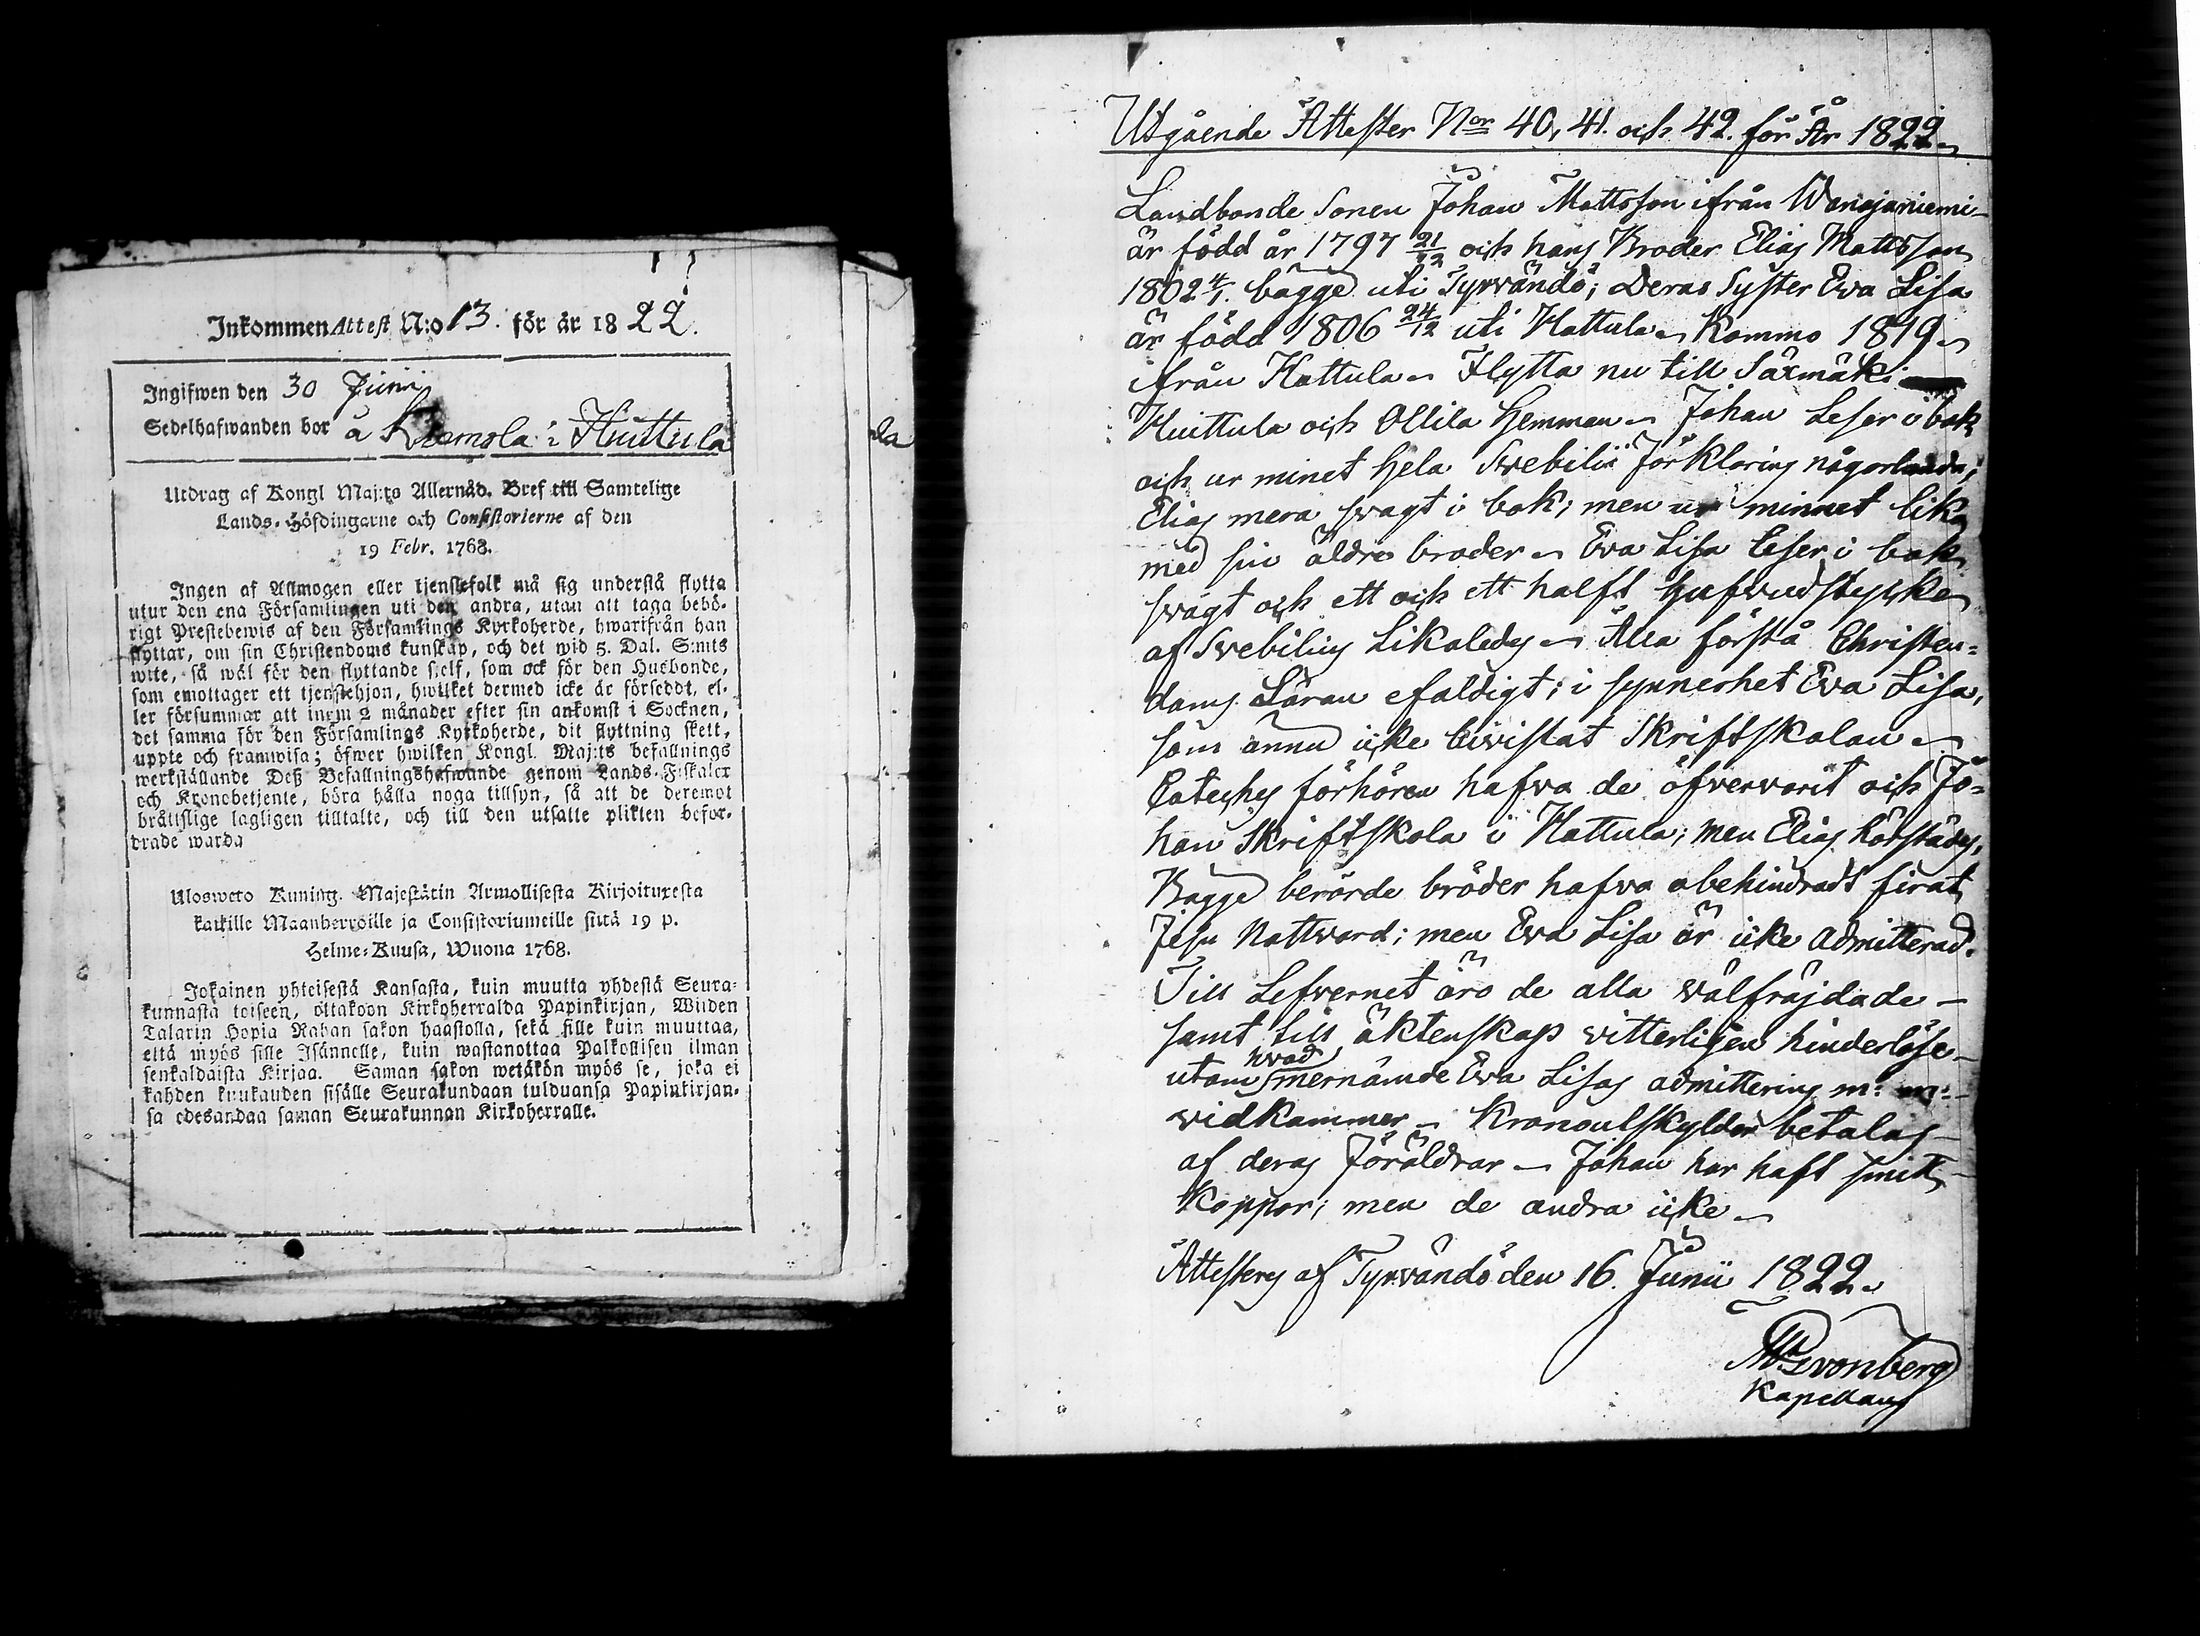 Inkommen Attest N:o 13. för år 1822.
Ingifwen den 30 Junii
Sedelhafwanden bor å Kiemola i Huittula
Utdrag af Kongl Maj:ts Allernåd. Bref till Samtelige
Lands-Höfdingarne och Consistorierne af den
19 Febr. 1768.
Ingen af Allmogen eller tjenstefolk må sig understå flytta
utur den ena Församlingen uti den andra, utan att taga behö-
rigt Prestebewis af den Församlings Kyrkoherde, hwarifrån han
flyttar, om sin Christendoms kunskap, och det wid 5. Dal. S:mts
wite, så wäl för den flyttande sielf, som ock för den Husbonde,
som emottager ett tjenstehjon, hwilket dermed icke är försedt, el-
ler försummar att inom 2 månader efter sin ankomst i Socknen,
det samma för den Församlings Kyrkoherde, dit flyttning skett,
uppte och framwisa; öfwer hwilken Kongl. Maj:ts befallnings
werkställande Deß Befallningshafwande genom Lands-Fiskaler
och Kronobetjente, böra hålla noga tillsyn, så att de deremot
bråttslige lagligen tilltalte, och till den utsatte plikten befor-
drade warda
Ulosweto Kuning. Majestätin Armollisesta Kirjoituxesta
kaikille Maanherroille ja Consistoriumeille siitä 19 p.
Helme-Kuusa, Wuona 1768.
Jokainen yhteisestä Kansasta, kuin muutta yhdestä Seura-
kunnasta toiseen, ottakoon Kirkoherralda Papinkirjan, Wiiden
Talarin Hopia Rahan sakon haastolla, sekä sille kuin muuttaa,
että myös sille Isännelle, kuin wastanottaa Palkollisen ilman
senkaldaista Kirjaa. Saman sakon wetäkön myös se, joka ei
kahden kuukauden sisälle Seurakundaan tulduansa Papinkirjan-
sa edesandaa saman Seurakunnan Kirkoherralle.
la
Utgående Attester N:or 40, 41. och 42. för År 1822.
Landbonde Sonen Johan Mattsson ifrån Wanajaniemi
är född år 1797 21/12 och hans Broder Elias Mattsson
1802 4/1. bägge uti Tyrvändö; Deras Syster Eva Lisa
är född 1806 24/12 uti Hattula. Kommo 1819
ifrån Hattula. Flytta nu till Särmäki
Huittula och Ollila Hemman. Johan Läser i bok
och ur minet hela Svebilii Förklaring någorlunda;
Elias mera svagt i bok; men ur minnet lika
med sin äldre broder. Eva Lisa Läser i bok
svagt och ett och ett halft hufvudstycke
af Svebilius Likaledes. Alla förstå Christen-
doms Läran efaldigt; i synnerhet Eva Lisa,
som ännu icke bivistat Skriftskolan.
Cateches förhören hafva de öfvervarit och Jo-
han Skriftskola i Hattula; men Elias härstädes.
Bägge berörde bröder hafva obehindradt firat
Jesu Nattvard; men Eva Lisa är icke admitterad.
Till Lefvernet äro de alla välfräjdade
samt till äktenskap vitterligen hinderlöse
utom hvad mernämde Eva Lisas admittering m: m:
vidkommer. Kronoutskylder betalas
af deras Föräldrar. Johan har haft smitt
Koppor; men de andra icke.
Attesteras af Tyrvändö den 16. Junii 1822.
Kapellans